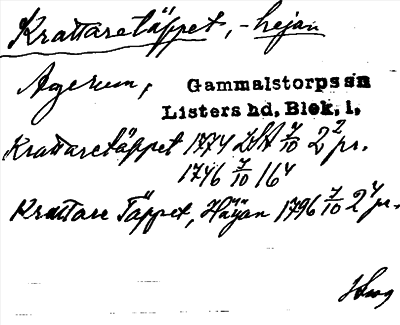 Krattaretäppet, -hejan
Agerum,
Gammalstorps sn
Listers hd, Blek. l.
Krattaretäppet 1774 LSA 7/10 2² pr.
1746 7/10 16⁴
Krattare Täppet, Häjan 1796 7/10 2⁴ pr.